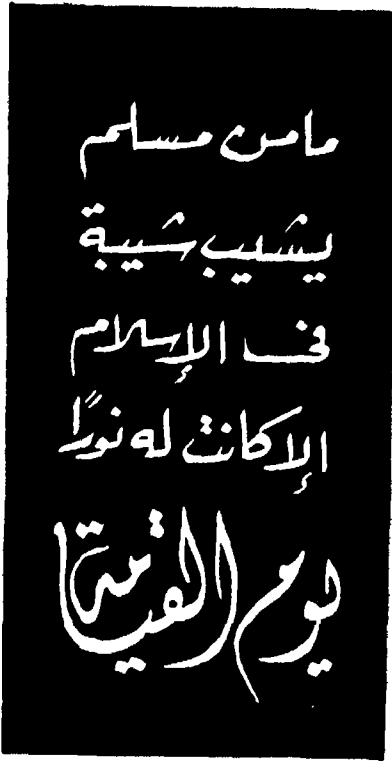 مامن مسلم
يشيب شيبة
فى الإسلام
إلا كانت له نورًا
يوم القيامة